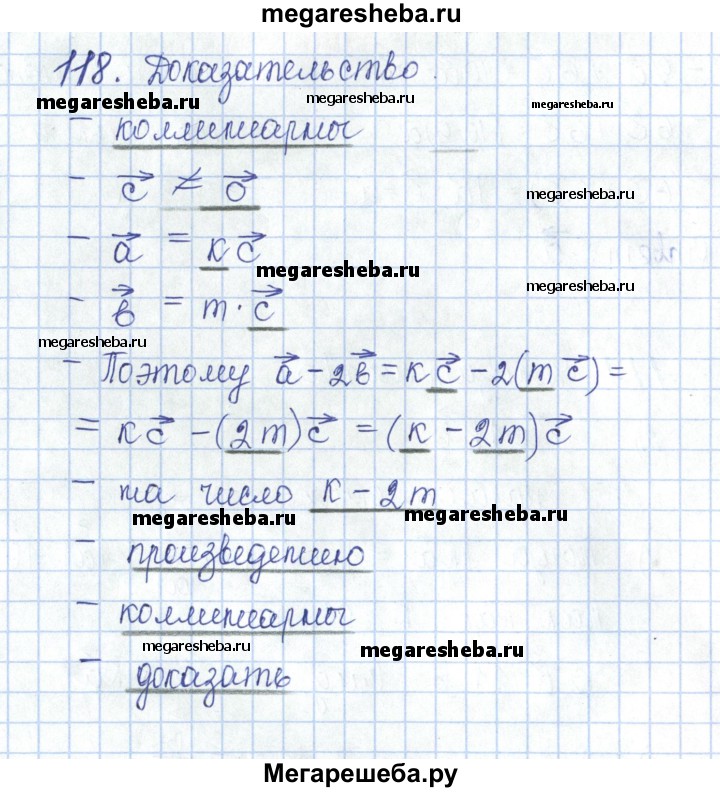 megaresheba.ru
118. Доказательство.
megaresheba.ru megaresheba.ru megaresheba.ru
– коллинеарны
megaresheba.ru
– c⃗ ≠ 0⃗
megaresheba.ru
– a⃗ = кc⃗
megaresheba.ru
megaresheba.ru
– в⃗ = m · c⃗
megaresheba.ru
– Поэтому a⃗ - 2в⃗ = кc⃗ - 2(m c⃗) =
= кc⃗ - (2m)c⃗ = (к - 2m)c⃗
– на число к - 2m
megaresheba.ru megaresheba.ru
– произведению
– коллинеарны
megaresheba.ru megaresheba.ru
– доказать
Мегарешеба.ру